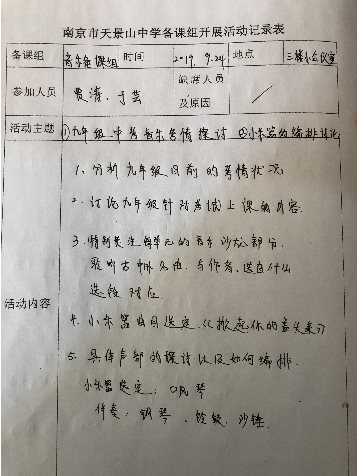 南京市天景山中学备课组开展活动记录表
备课组 音乐备课组 时间 2019.9.24 地点 三楼小会议室
参加人员 贾清、于芸 缺席人员及原因 /
活动主题 ①九年级中考音乐考情探讨 ②小乐器的编排讨论
活动内容
1、分析九年级目前的考情状况
2、讨论九年级针对考试上课的内容.
3、特别关注每单元的音乐沙龙部分.
聆听古中外名曲.与作者、选自什么
选段对应.
4、小乐器曲目选定《掀起你的盖头来》
5、具体声部的探讨以及如何编排.
小乐器选定:口风琴
伴奏:钢琴、铃鼓、沙锤.